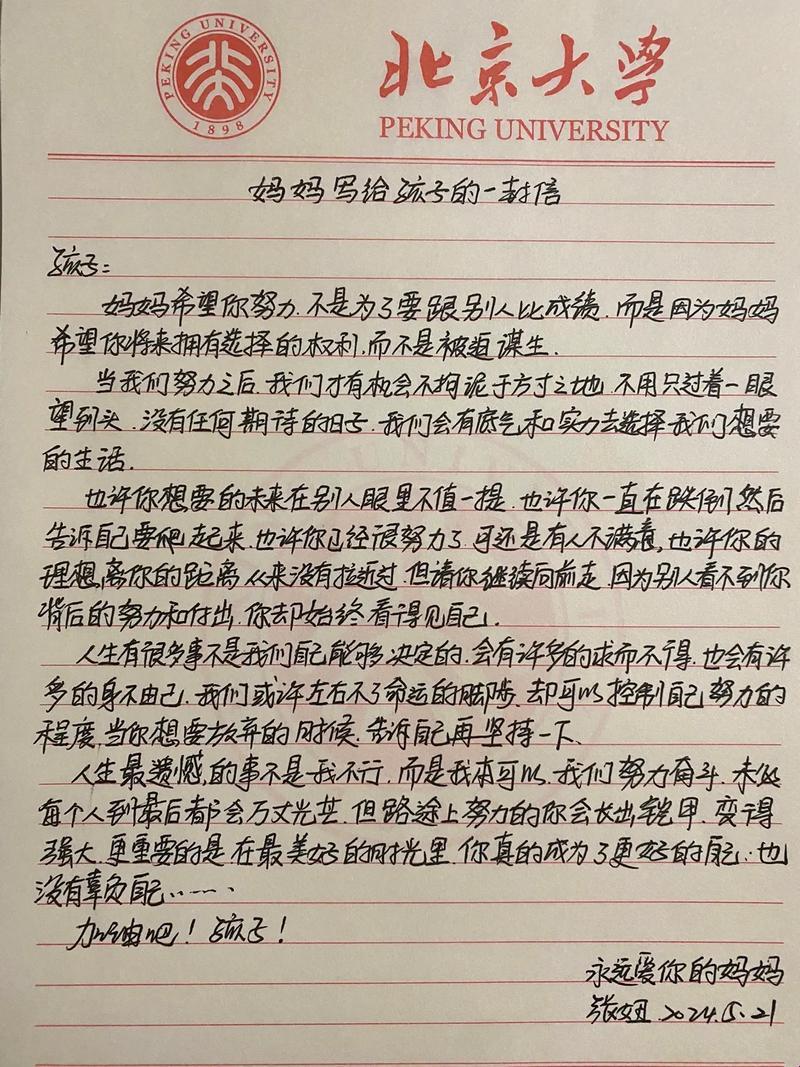 PEKING UNIVERSITY
1898
北京大学
PEKING UNIVERSITY
妈妈写给孩子的一封信
孩子：
妈妈希望你努力.不是为了要跟别人比成绩.而是因为妈妈
希望你将来拥有选择的权利,而不是被迫谋生.
当我们努力之后.我们才有机会不拘泥于方寸之地.不用只过着一眼
望到头.没有任何期待的日子.我们会有底气和实力去选择我们想要
的生活.
也许你想要的未来在别人眼里不值一提.也许你一直在跌倒然后
告诉自己要爬起来.也许你已经很努力了.可还是有人不满意,也许你的
理想,离你的距离从来没有拉近过.但请你继续向前走.因为别人看不到你
背后的努力和付出.你却始终看得见自己.
人生有很多事不是我们自己能够决定的.会有许多的求而不得.也会有许
多的身不由己.我们或许左右不了命运的脚步.却可以控制自己努力的
程度,当你想要放弃的时候.告诉自己再坚持一下、
人生最遗憾,的事不是我不行,而是我本可以.我们努力奋斗.未必
每个人到最后都会万丈光芒.但路途上努力的你会长出铠甲.变得
强大.更重要的是在最美好的时光里.你真的成为了更好的自己.也
没有辜负自己……
加油吧！孩子！
永远爱你的妈妈
张妞.2024.5.21